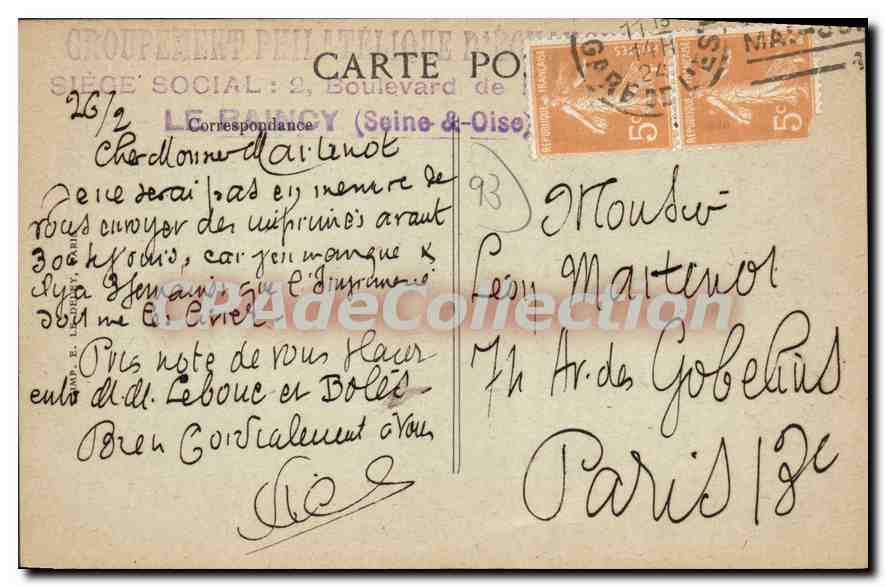 GROUPEMENT PHILATÉLIQUE
CARTE PO
SIÈGE SOCIAL : 2, Boulevard de
LE RAINCY (Seine-&-Oise)
Correspondance
26/2
Cher Monsieur Martenot
Je ne serai pas en mesure de
vous envoyer des imprimés avant
jours, car j'en manque &
il y a 3 semaines que l'Imprimerie
doit me les livrer
Pris note de vous placer
entre M.M. Lebouc et Bolés
Bien Cordialement à vous
IMP. E. LE DELEY, PARIS
93
REPUBLIQUE FRANÇAISE
5c
REPUBLIQUE FRANÇAISE
5c
14H
24
GARE DE L'EST
Monsieur
Léon Martenot
74 Av. des Gobelins
Paris 13e
CPAdeCollection